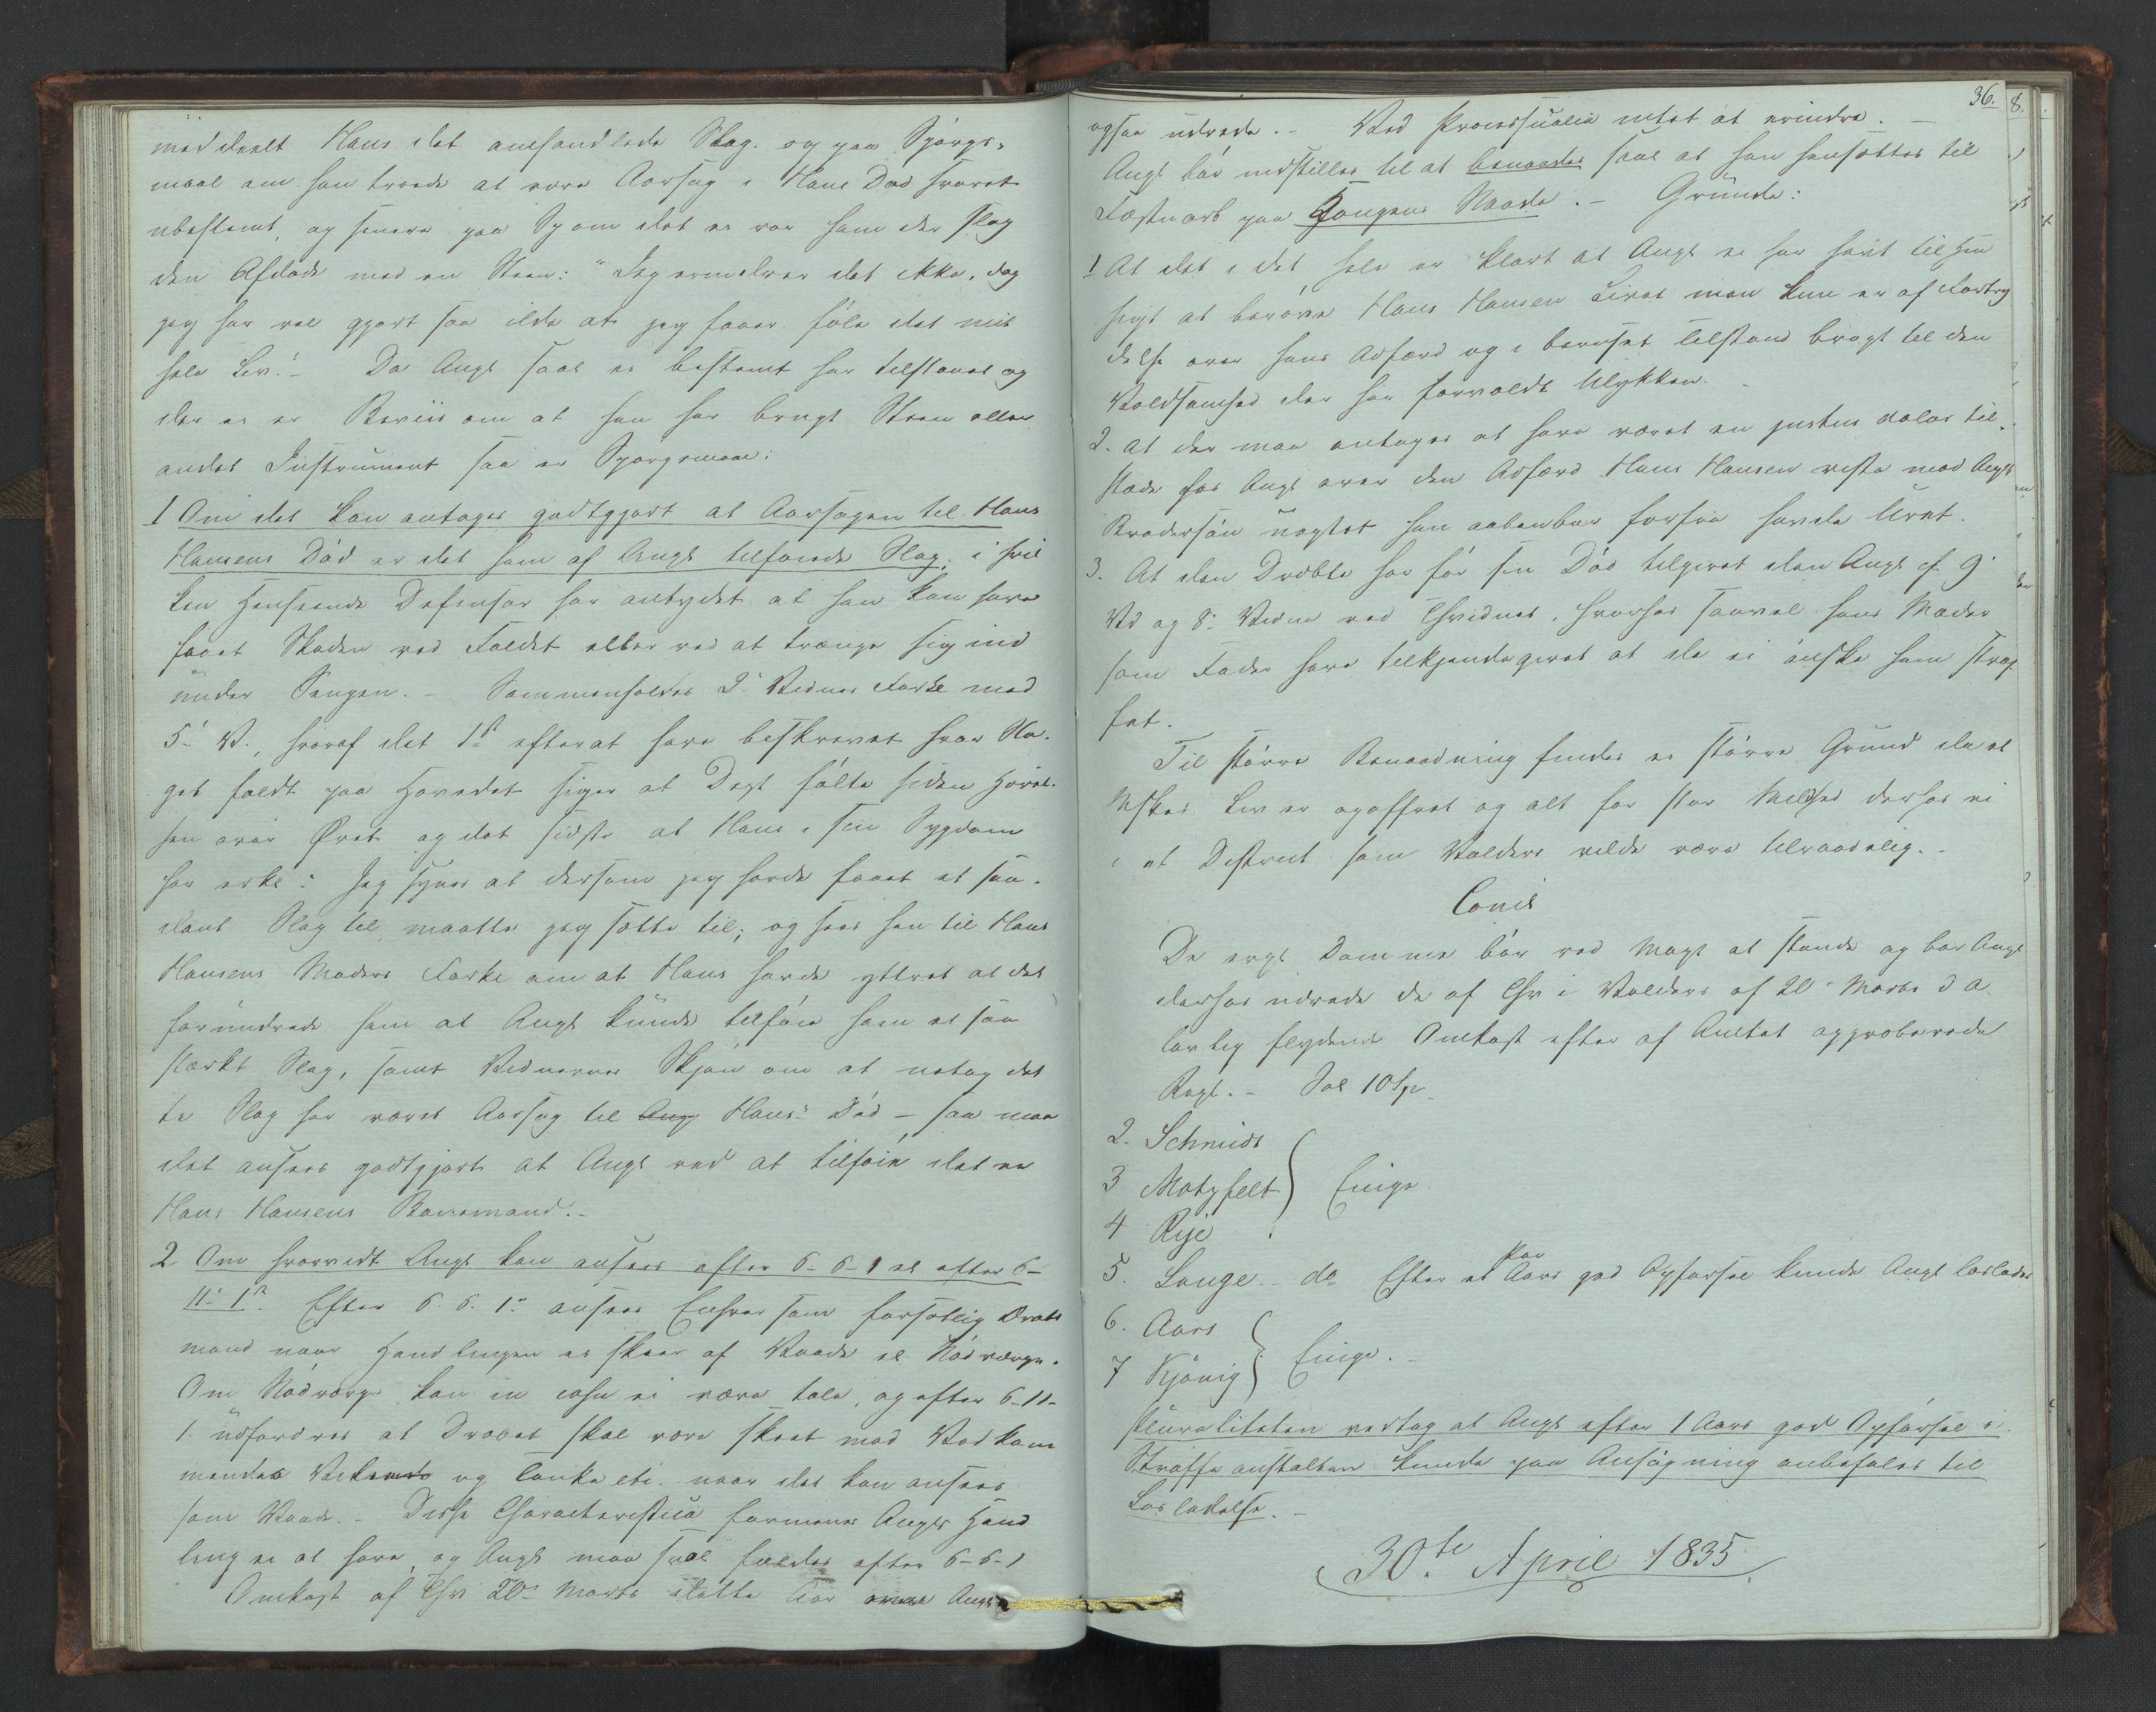 meddeelt Hans det omhandlede Slag. og paa Spørgs-
maal om han troede at være Aarsag i Hans Død svaret
ubestemt, og senere paa Sp om det er var ham der slog
den Afdøde med en Steen: "Jeg erindrer det ikke, dog
jeg har vel gjort saa ilde at jeg faaer føle det mit
hele Liv". – Da Angl saal ei bestemt har tilstaaet og
der ei er Beviis om at han har brugt Steen eller
andet Instrument saa er Spørgsmaal:
1 Om det kan antages godtgjort at Aarsagen til Hans
Hansens Død er det ham af Angl tilføiede Slag; i hvil
ken Henseende Defensor har antydet at han kan have
faaet Skaden ved Faldet eller ved at trænge sig ind
under Sengen. – Sammenholdes 2' Vidnes Forkl med
5' V., hvoraf det 1st efterat have beskrevet hvor Sla-
get faldt paa Hovedet siger at Degt følte siden Hævel-
sen over Øret og det sidste at Hans i sin Sygdom
har erkl: Jeg synes at dersom jeg havde faaet et saa-
dant Slag til maatte jeg sætte til; og sees hen til Hans
Hansens Moders Forkl om at Hans havde yttret at det
forundrede ham at Angl kunde tilføie ham et saa
stærkt Slag, samt Vidnernes Skjøn om at netop det
te Slag har været Aarsag til Ang Hans' Død – saa maa
det ansees godtgjort at Angl ved at tilføie det er
Hans Hansens Banemand. –
2 Om hvorvidt Angl kan ansees efter 6-6-1 el efter 6-
11-1st. Efter 6. 6. 1' ansees Enhver som forsætlig Drabs
mand naar Handlingen ei skeer af Vaade el Nødværge.
Om Nødværge kan in casu ei være tale, og efter 6-11-
1. udfordres at Drabet skal være skeet mod Vedkom
mendes og Tanke etc. naar det kan ansees
som Vaade. – Disse Characteristica formenes Angls Hand
ling ei at have, og Angl maa saal fældes efter 6-6-1
Omkost af Chr 20' Marts dette Aar Angl
36.
ogsaa udrede. – Ved Processualia intet at erindre. –
Angl bør indstilles til at benaades saal at han hensættes til
Fæstnarb paa Kongens Naade. – Grunde:
1 At det i det hele er klart at Angl ei har havt til Hen
sigt at berøve Hans Hansen Livet men kun er af Fortry
delse over hans Adfærd og i beruset Tilstand bragt til den
Voldsomhed der har forvoldt Ulykken. –
2. at der maa antages at have været en justus dolor til-
stæde hos Angl over den Adfærd Hans Hansen viste mod Angls
Brodersøn uagtet han aabenbar forfra havde Uret.
3. At den Dræbte har før sin Død tilgivet den Angl cf. 9'
Vd og 8' Vidne ved Thvidnet, hvorhos saavel hans Moder
som Fader have tilkjendegivet at de ei ønske ham straf
fet.
Til større Benaadning findes ei større Grund da et
Mskes Liv er opoffret og alt for stor Mildhed derhos ei
i et District som Valders vilde være tilraadelig. –
Concl
De ergl Domme bør ved Magt at stande og bør Angl
derhos udrede de af Chr i Valders af 20' Marts d A
lovlig flydende Omkost efter af Amtet approberede
Regl. – Sal 10 Sp.
2. Schmidt
3 Motzfelt } Enige
4 Rye
5. Lange – do Efter et par Aars god Opførsel kunde Angl løslades
6. Aars
7 Kjønig } Enige. –
Pluraliteten vedtog at Angl efter 1 Aars god Opførsel i
Straffeanstalten kunde paa Ansøgning anbefales til
Løsladelse. –
30te April 1835.